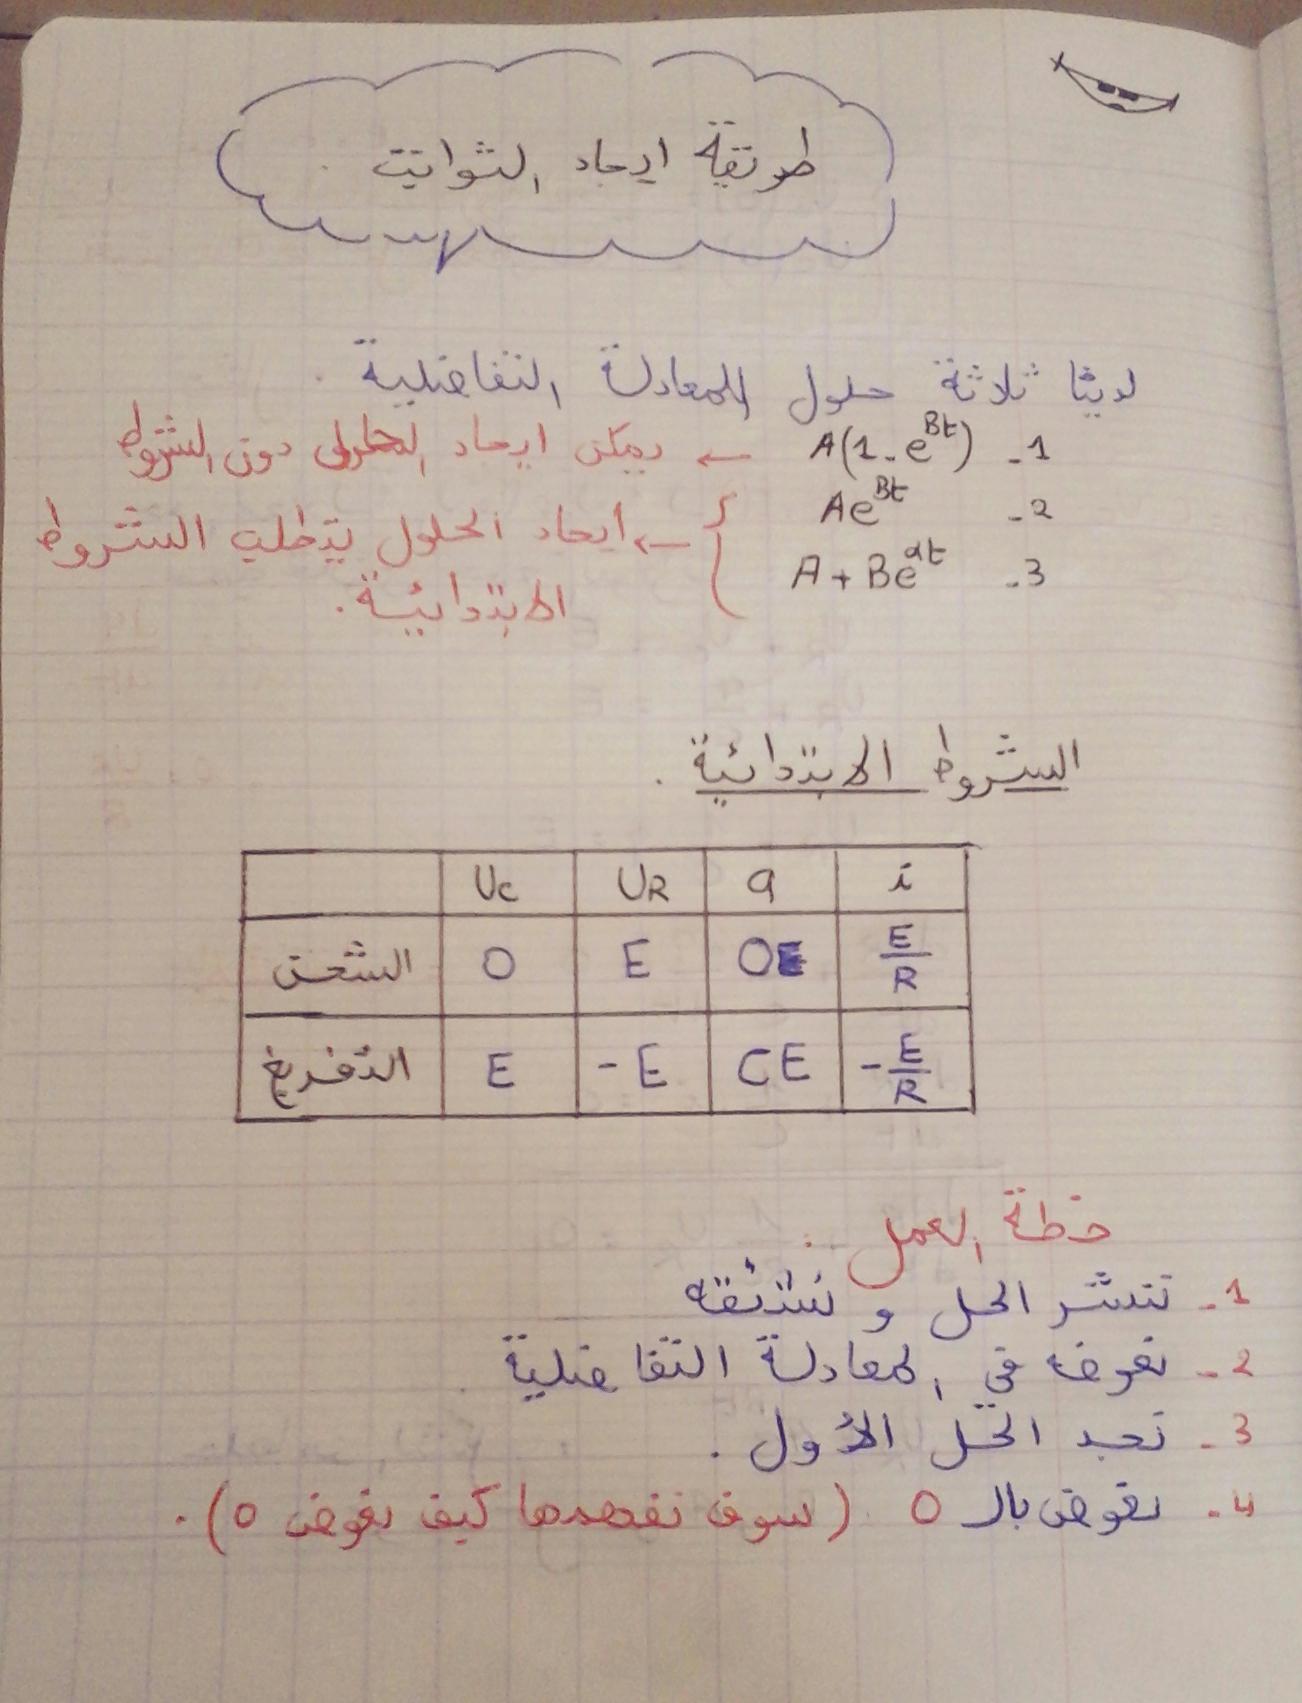 طريقة ايجاد الثوابت
لدينا ثلاثة حلول للمعادلة التفاضلية.
1- A(1-e^Bt) ← يمكن ايجاد الحلول دون الشروط
2- Ae^Bt
3- A+Be^αt
← ايجاد الحلول يتطلب الشروط
الابتدائية.
الشروط الابتدائية.
Uc UR q i
الشحن 0 E 0 E/R
التفريغ E -E CE -E/R
خطة العمل:
1- ننشر الحل و نشتقه
2- نعوضه في المعادلة التفاضلية.
3- نجد الحل الأول.
4- نعوض بالـ 0 (سوف نفهمها كيف نعوض 0).